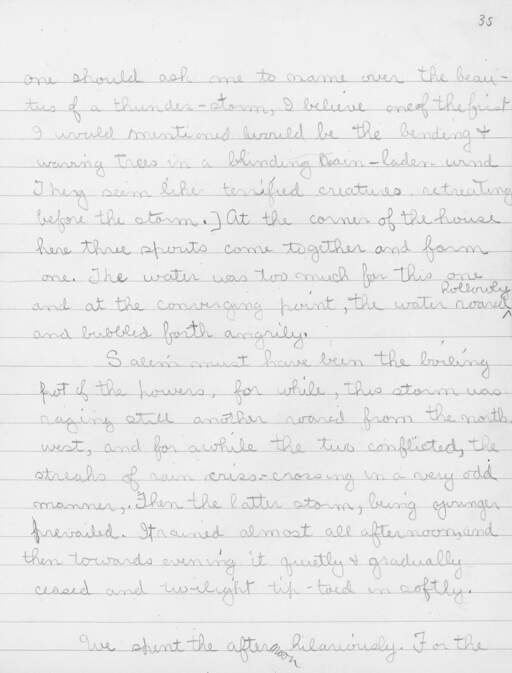 35
one should ask me to name over the beau-
ties of a thunder-storm, I believe one of the first
I would mentioned would be the bending &
waving trees in a blinding rain-laden wind
They seem like terrified creatures retreating
before the storm.] At the corner of the house
here three spouts come together and form
one. The water was too much for this one
and at the converging point, the water roared hollowly
and bubbled forth angrily.
Salem must have been the boiling
pot of the powers, for while, this storm was
raging still another roared from the north
west, and for awhile the two conflicted, the
streaks of rain criss-crossing in a very odd
manner,. Then the latter storm, being younger
prevailed. It rained almost all afternoon, and
then towards evening it quietly & gradually
ceased and twilight tip-toed in softly.
We spent the afternoon hilariously. For the